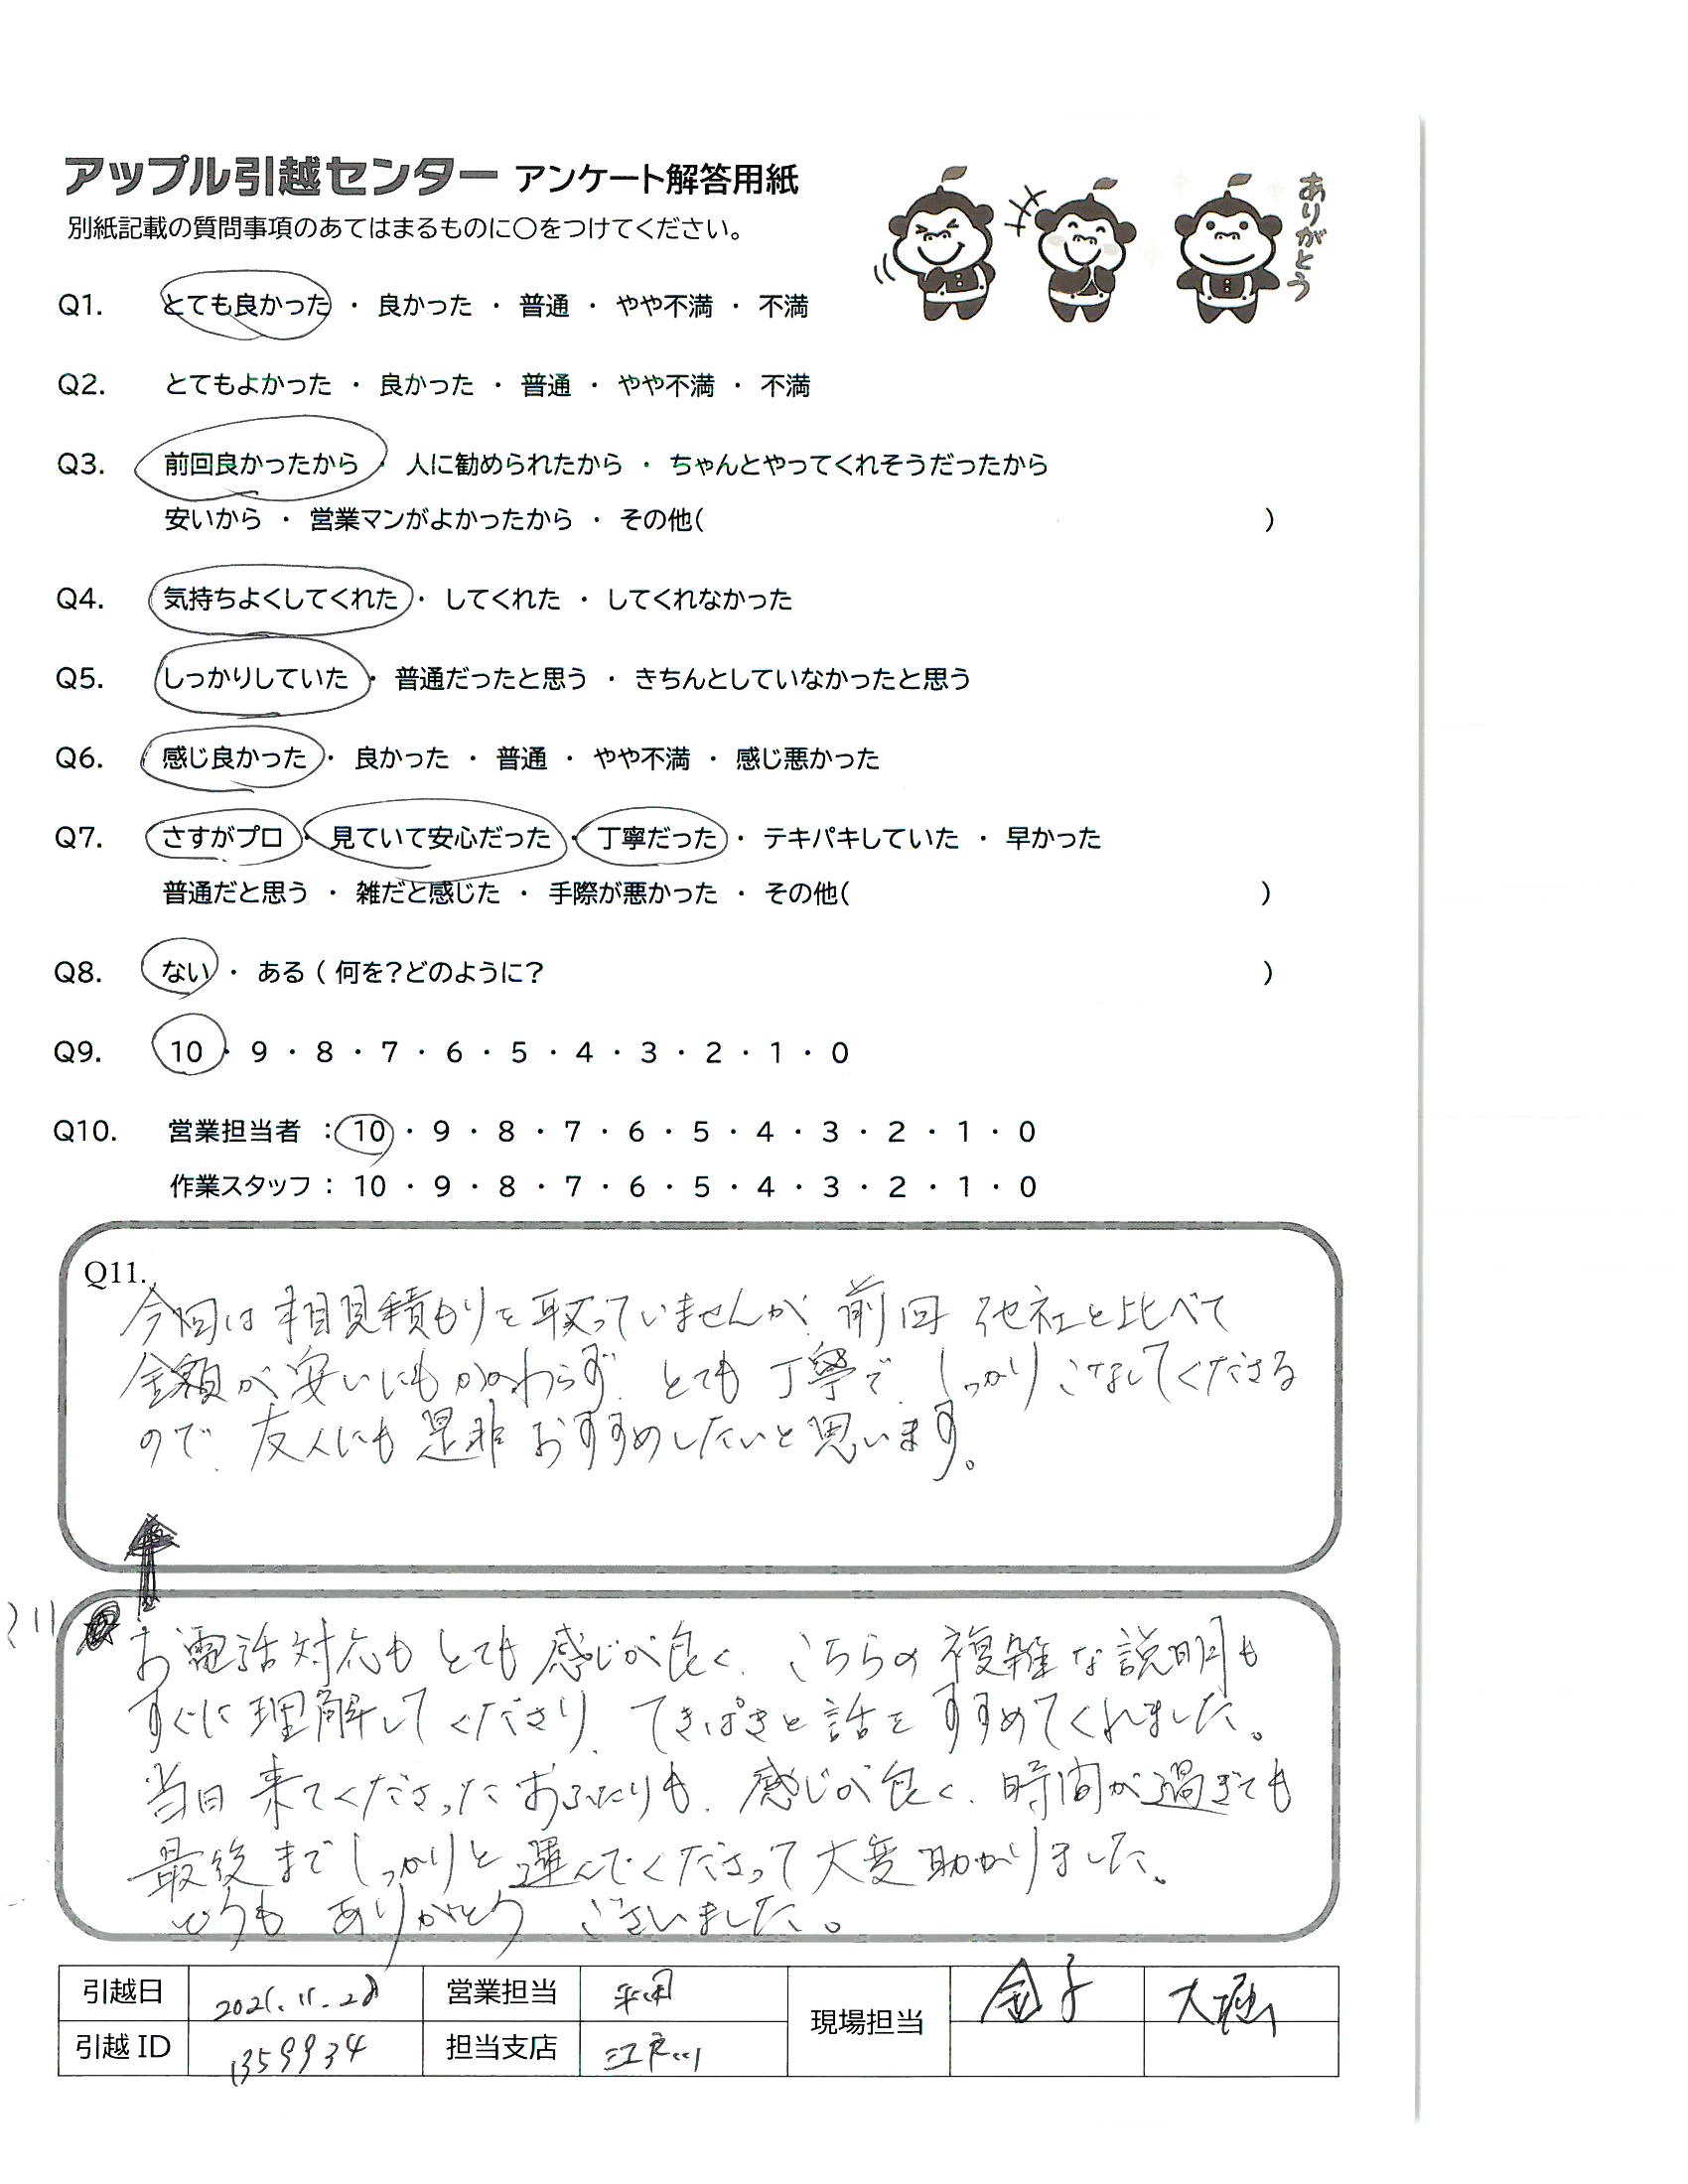 アップル引越センター アンケート解答用紙
ありがとう
別紙記載の質問事項のあてはまるものに○をつけてください。
Q1. とても良かった ・ 良かった ・ 普通 ・ やや不満 ・ 不満
Q2. とてもよかった ・ 良かった ・ 普通 ・ やや不満 ・ 不満
Q3. 前回良かったから ・ 人に勧められたから ・ ちゃんとやってくれそうだったから
安いから ・ 営業マンがよかったから ・ その他( )
Q4. 気持ちよくしてくれた ・ してくれた ・ してくれなかった
Q5. しっかりしていた ・ 普通だったと思う ・ きちんとしていなかったと思う
Q6. 感じ良かった ・ 良かった ・ 普通 ・ やや不満 ・ 感じ悪かった
Q7. さすがプロ ・ 見ていて安心だった ・ 丁寧だった ・ テキパキしていた ・ 早かった
普通だと思う ・ 雑だと感じた ・ 手際が悪かった ・ その他( )
Q8. ない ・ ある ( 何を?どのように? )
Q9. 10 ・ 9 ・ 8 ・ 7 ・ 6 ・ 5 ・ 4 ・ 3 ・ 2 ・ 1 ・ 0
Q10. 営業担当者 : 10 ・ 9 ・ 8 ・ 7 ・ 6 ・ 5 ・ 4 ・ 3 ・ 2 ・ 1 ・ 0
作業スタッフ : 10 ・ 9 ・ 8 ・ 7 ・ 6 ・ 5 ・ 4 ・ 3 ・ 2 ・ 1 ・ 0
Q11.
今回は相見積もりを取っていませんが、前回 他社と比べて
金額が安いにもかかわらず、とても丁寧で、しっかりこなしてくださる
ので、友人にも是非おすすめしたいと思います。
お電話対応もとても感じが良く、こちらの複雑な説明も
すぐに理解してくださり、てきぱきと話をすすめてくれました。
当日来てくださったおふたりも、感じが良く、時間が過ぎても
最後までしっかりと運んでくださって大変助かりました。
どうもありがとうございました。
引越日 2021.11.28 営業担当 現場担当 金子 大堀
引越 ID 1359934 担当支店 江戸川